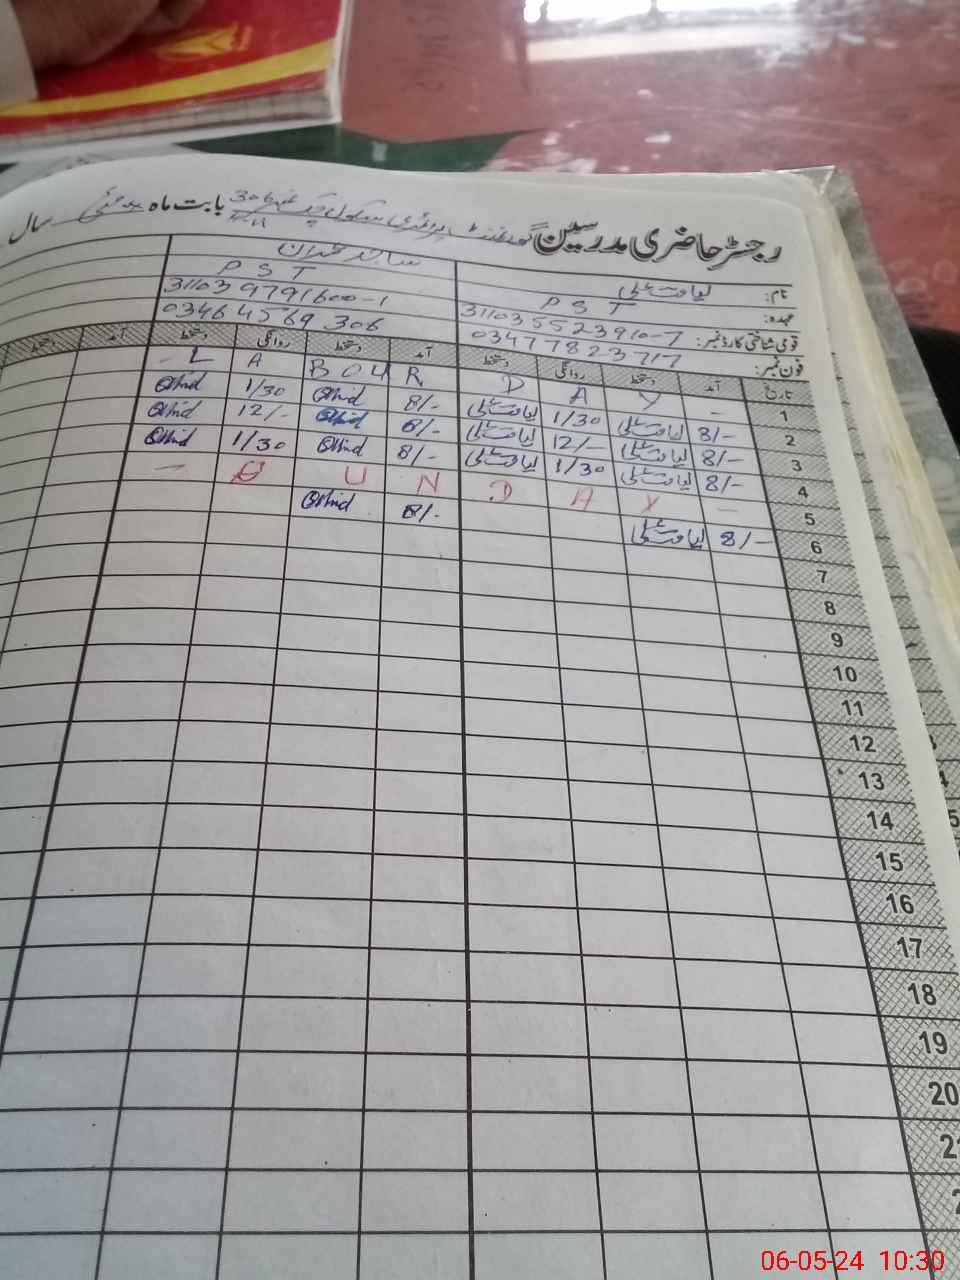 رجسٹر حاضری مدرسین گورنمنٹ پرائمری سکول چک نمبر 306 بابت ماہ مئی سال
نام: لیاقت علی
عہدہ: P S T P S T
قومی شناختی کارڈ نمبر: 31103 5523910-7 31103 9791600-1
فون نمبر: 03477823717 0346 4569 306
تاریخ آمد دستخط روانگی دستخط آمد دستخط روانگی دستخط آمد دستخط
1 - L A B O U R D A Y -
2 8/- لیاقت علی 1/30 لیاقت علی 8/- 1/30
3 8/- لیاقت علی 12/- لیاقت علی 8/- 12/-
4 8/- لیاقت علی 1/30 لیاقت علی 8/- 1/30
5 - S U N D A Y -
6 8/- لیاقت علی 8/-
7
8
9
10
11
12
13
14
15
16
17
18
19
20
06-05-24 10:30